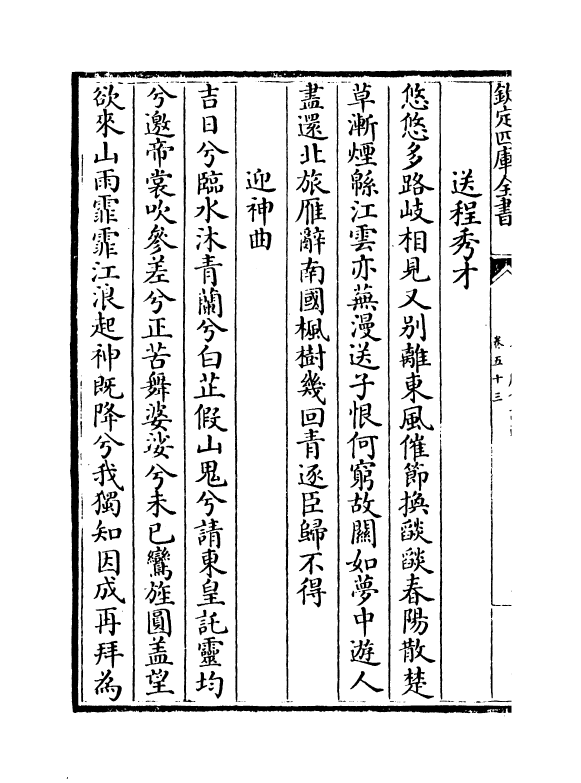 欽定四庫全書
卷五十三
送程秀才
悠悠多路岐相見又別離東風催節換燄燄春陽散楚
草漸煙緜江雲亦蕪漫送子恨何窮故關如夢中遊人
盡還北旅雁辭南國楓樹幾回青逐臣歸不得
迎神曲
吉日兮臨水沐青蘭兮白芷假山鬼兮請東皇託靈均
兮邀帝裳吹參差兮正苦舞婆娑兮未已鸞旌圓盖望
欲來山雨霏霏江浪起神既降兮我獨知因成再拜為